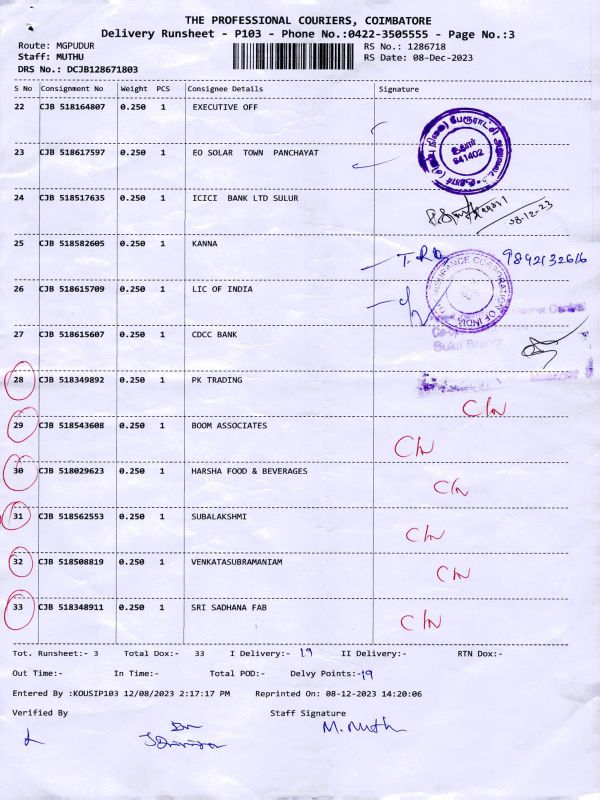 THE PROFESSIONAL COURIERS, COIMBATORE
Delivery Runsheet - P103 - Phone No.:0422-3505555 - Page No.:3
Route: MGPUDUR
RS No.: 1286718
Staff: MUTHU
RS Date: 08-Dec-2023
DRS No.: DCJB128671803
S No Consignment No Weight PCS Consignee Details Signature
22 CJB 518164807 0.250 1 EXECUTIVE OFF
641402
23 CJB 518617597 0.250 1 EO SOLAR TOWN PANCHAYAT
24 CJB 518517635 0.250 1 ICICI BANK LTD SULUR
08-12-23
25 CJB 518582605 0.250 1 KANNA
9842132616
26 CJB 518615709 0.250 1 LIC OF INDIA
INSURANCE CORPORATION OF INDIA
27 CJB 518615607 0.250 1 CDCC BANK
28 CJB 518349892 0.250 1 PK TRADING
C/N
29 CJB 518543608 0.250 1 BOOM ASSOCIATES
C/N
30 CJB 518029623 0.250 1 HARSHA FOOD & BEVERAGES
C/N
31 CJB 518562553 0.250 1 SUBALAKSHMI
C/N
32 CJB 518508819 0.250 1 VENKATASUBRAMANIAM
C/N
33 CJB 518348911 0.250 1 SRI SADHANA FAB
C/N
Tot. Runsheet:- 3 Total Dox:- 33 I Delivery:- 19 II Delivery:- RTN Dox:-
Out Time:- In Time:- Total POD:- Delvy Points:-19
Entered By :KOUSIP103 12/08/2023 2:17:17 PM Reprinted On: 08-12-2023 14:20:06
Verified By Staff Signature
M. Muth